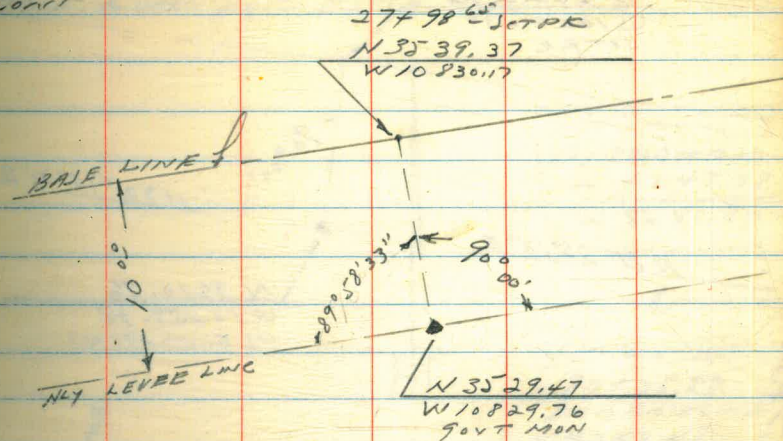 27+98 65 - SET PK
N 3539.37
W 10830.17
BASE LINE
10 00
89° 58' 33"
90° 00'
NLY LEVEE LINE
N 3529.47
W 10829.76
GOVT MON